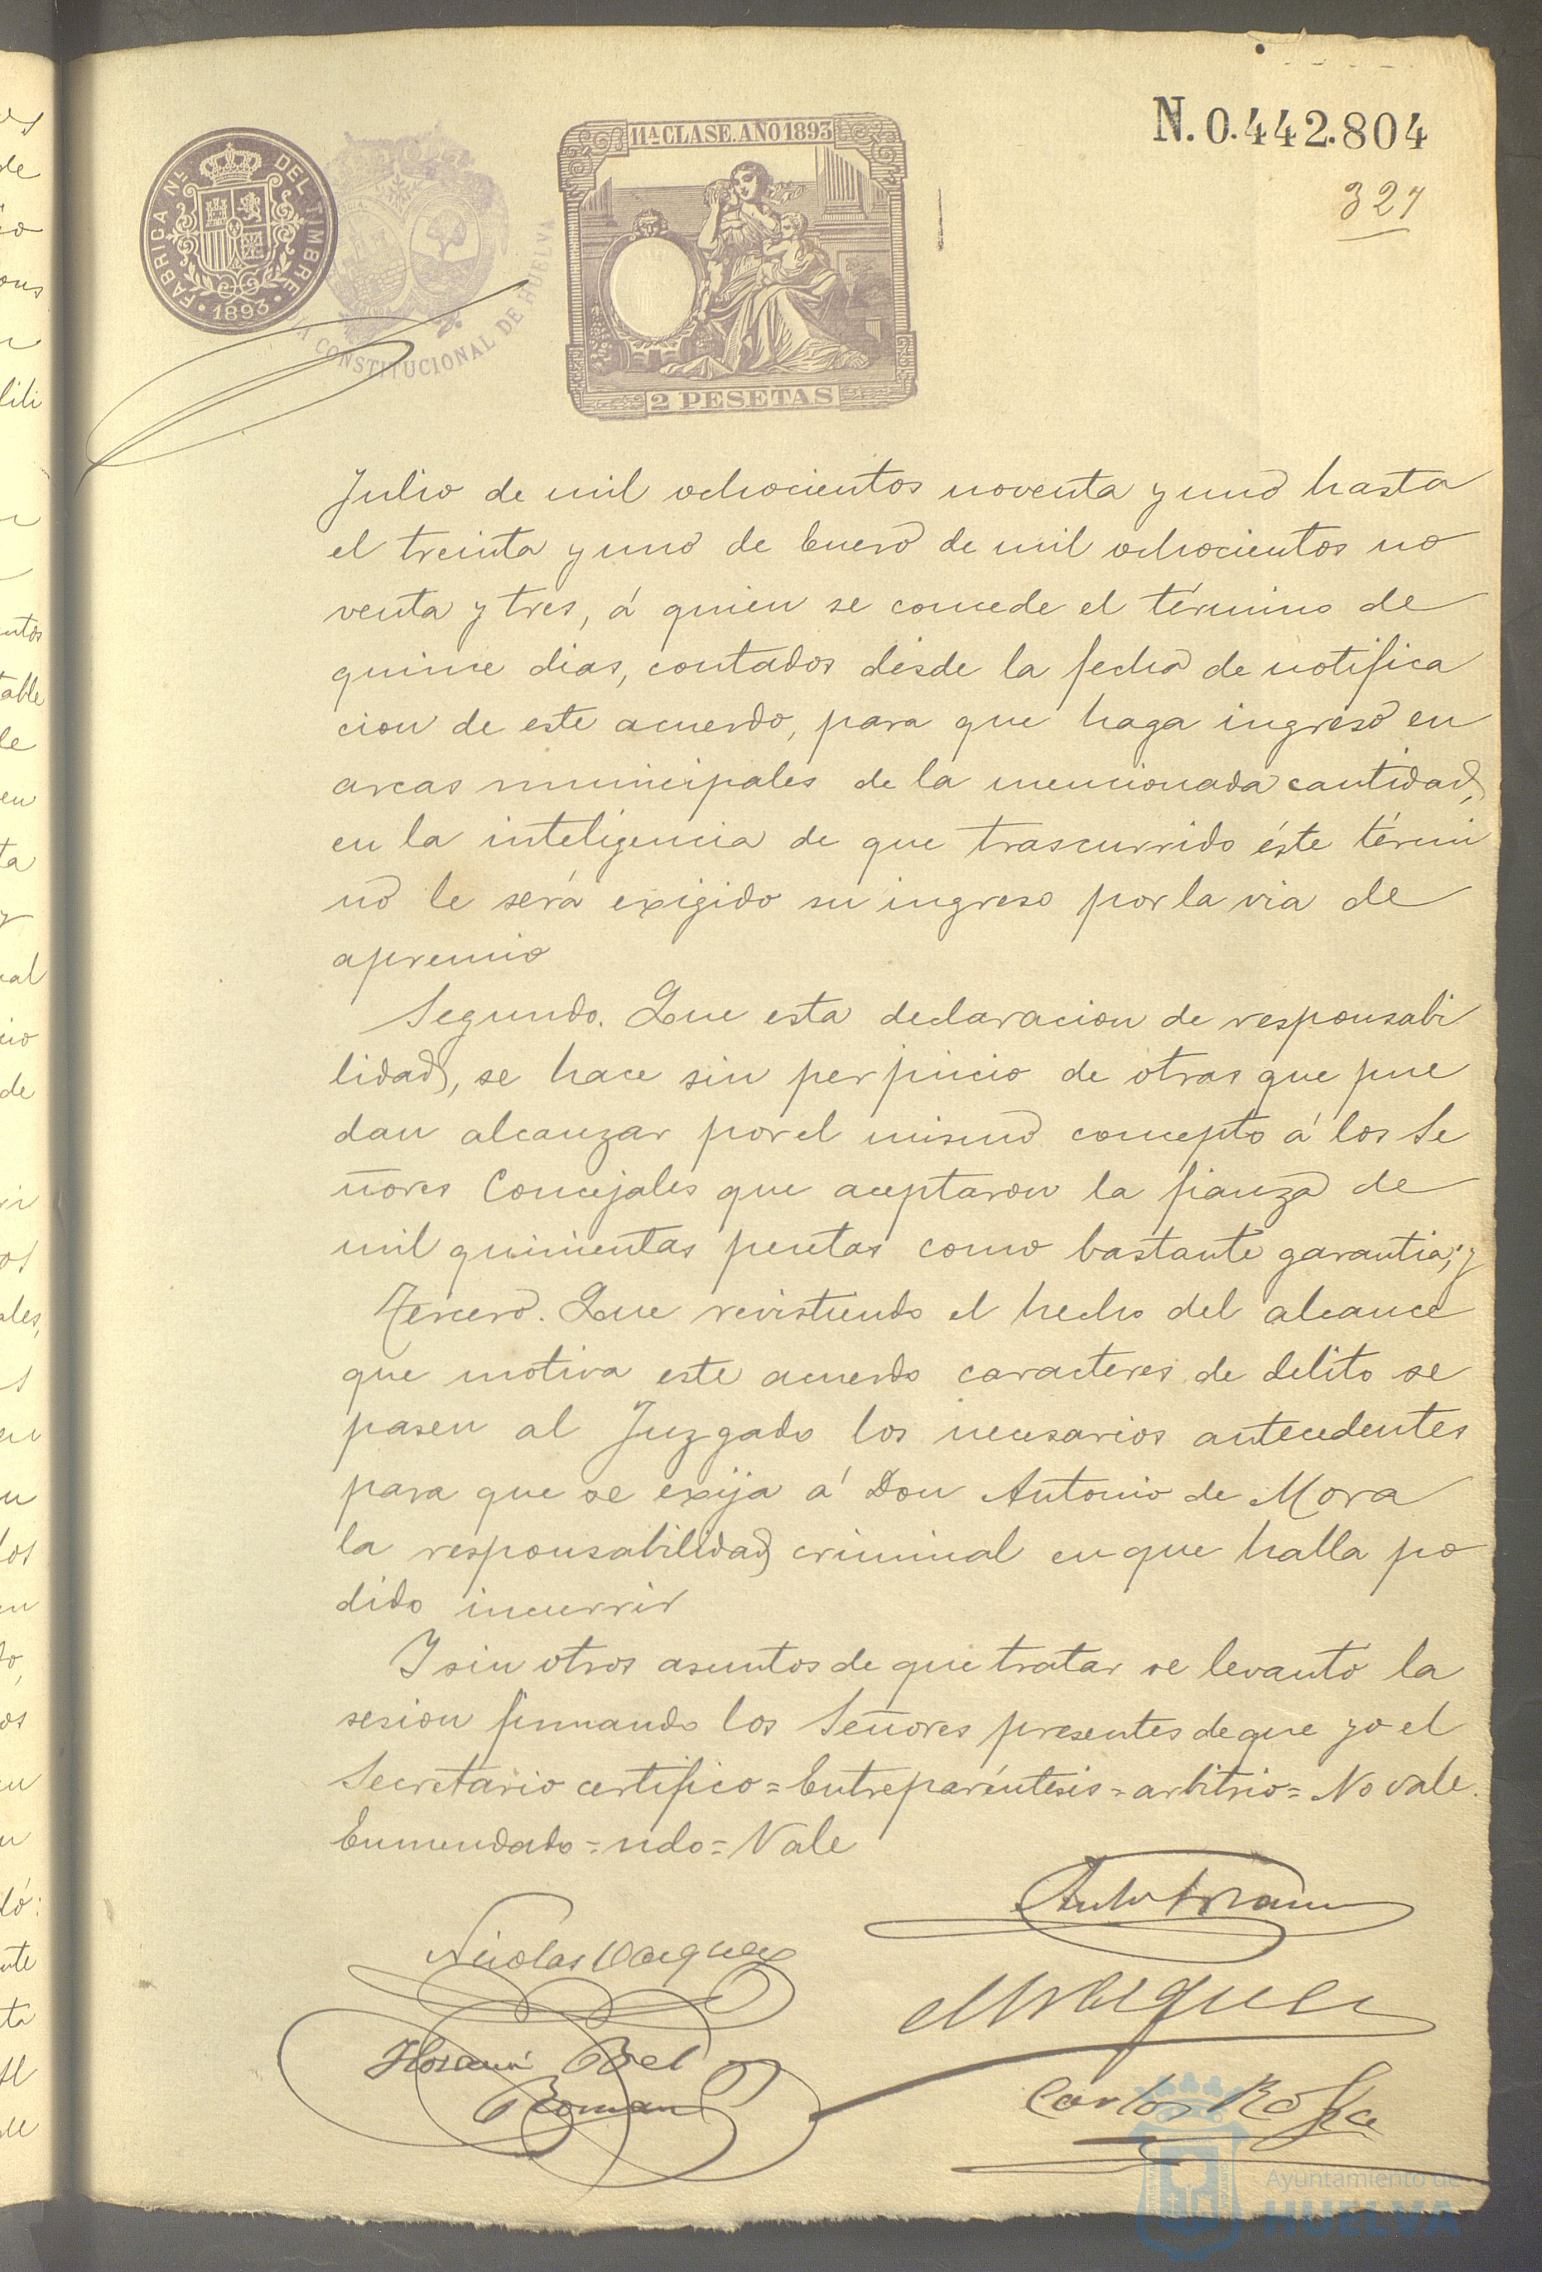 N. 0.442.804
327
11ª CLASE. AÑO 1893
FABRICA Nᴸ DEL TIMBRE
1893
CONSTITUCIONAL DE HUELVA
2 PESETAS
Julio de mil ochocientos noventa y uno hasta
el treinta y uno de Enero de mil ochocientos no
venta y tres, á quien se concede el término de
quince dias, contados desde la fecha de notifica
cion de este acuerdo, para que haga ingreso en
arcas municipales de la mencionada cantidad,
en la inteligencia de que trascurrido éste térmi
no le será exigido su ingreso por la via de
apremio
Segundo. Que esta declaracion de responsabi
lidad, se hace sin perjuicio de otras que pue
dan alcanzar por el mismo concepto á los Se
ñores Concejales que aceptaron la fianza de
mil quinientas pesetas como bastante garantia; y
Tercero. Que revistiendo el hecho del alcance
que motiva este acuerdo caracteres de delito se
pasen al Juzgado los necesarios antecedentes
para que se exija á Don Antonio de Mora
la responsabilidad criminal en que halla po
dido incurrir
Y sin otros asuntos de que tratar se levantó la
sesion firmando los Señores presentes de que yo el
Secretario certifico = Entreparéntesis = arbitrio = No vale.
Enmendado = ndo = Vale
Nicolas Vazquez
Carlos
Roman
Ayuntamiento de
HUELVA